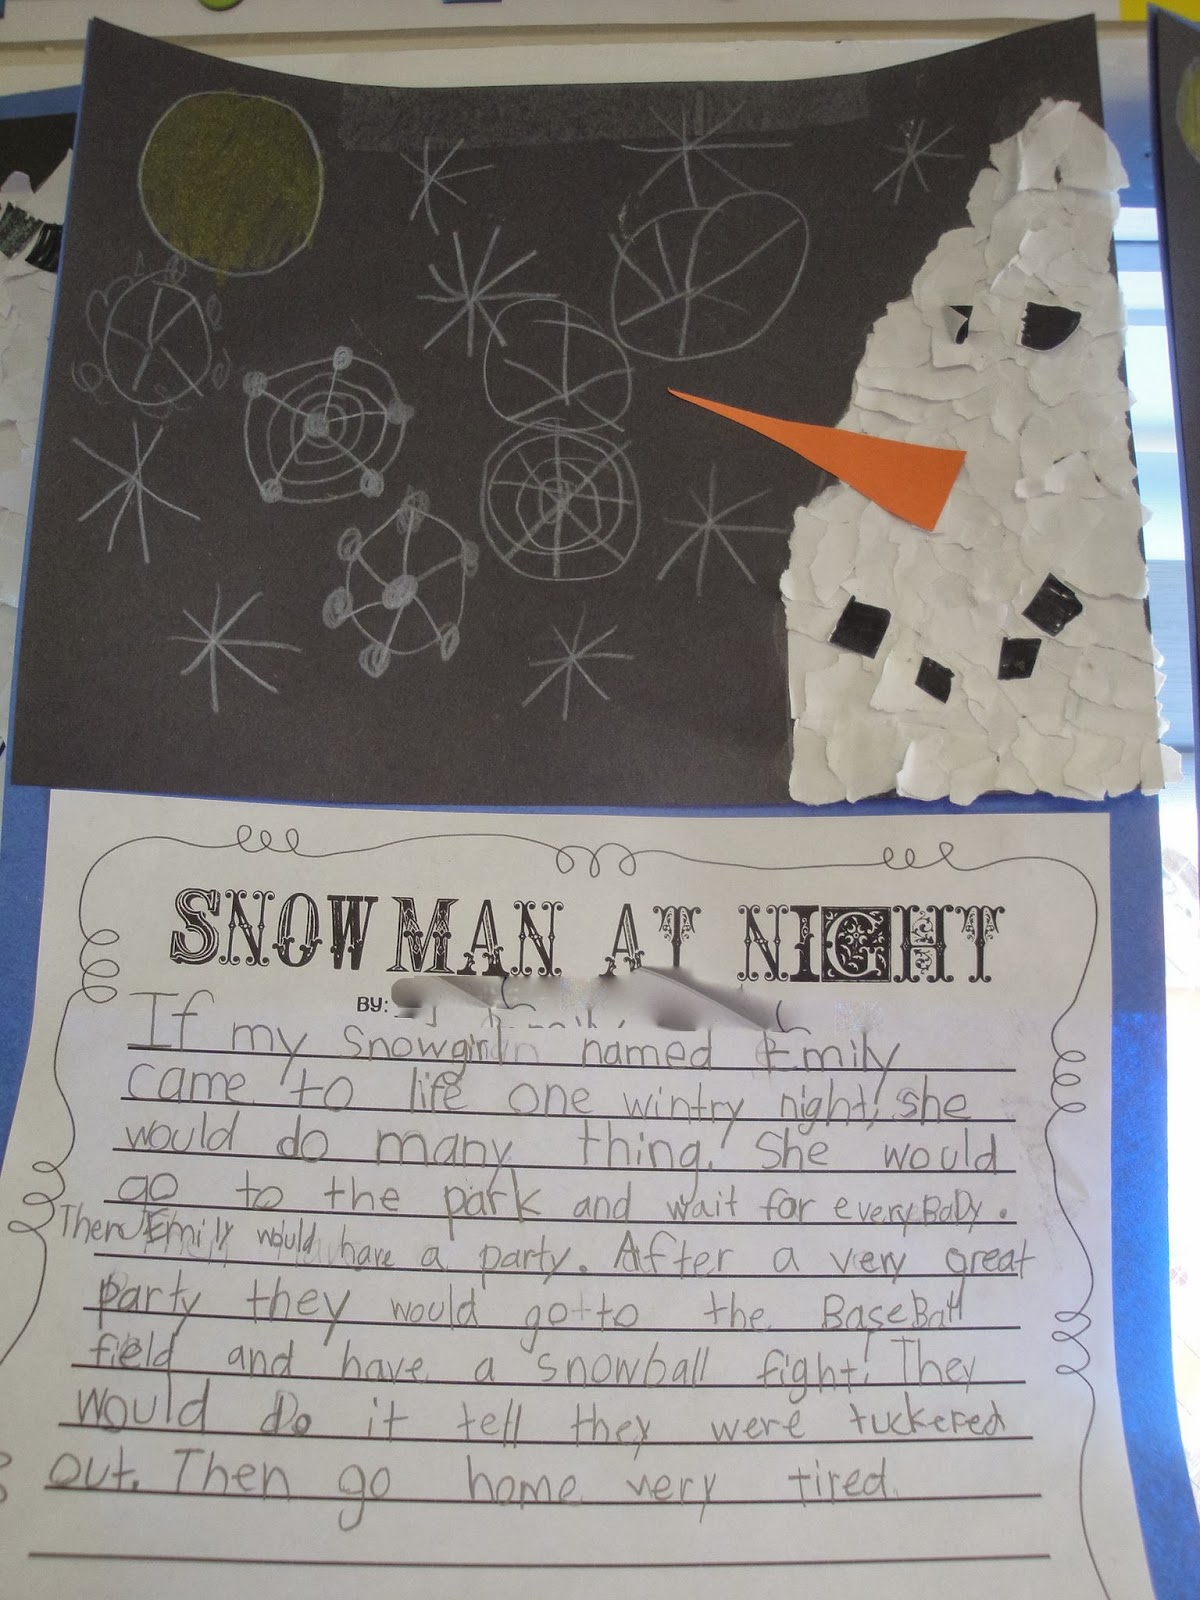 SNOWMAN AT NIGHT
BY:
If my snowgirl named Emily
came to life one wintry night, she
would do many thing. She would
go to the park and wait for everyBoDy.
Then Emily would have a party. After a very great
party they would go to the BaseBall
field and have a snowball fight. They
would Do it tell they were tuckered
out. Then go home very tired.